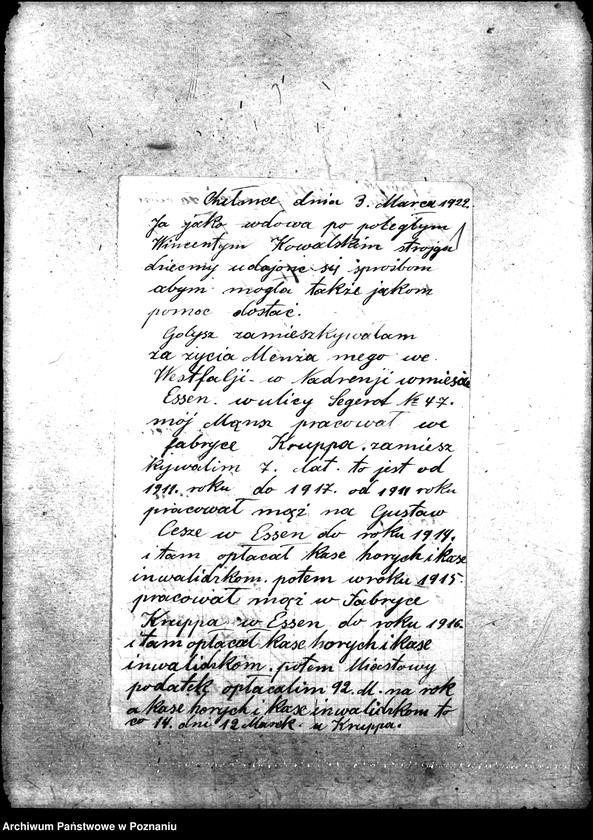 Chełmce dnia 3. Marca 1922.
Ja jako wdowa po poległym
Wincentym Kowalskim strojgu
dziecmy udajonc się sprożbom
abym mogla także jakom
pomoc dostać.
Gdysz zamieszkywalam
za życia Menża mego we
Westfalji. w Nadrenji wmiescie
Essen. wulicy Segerot № 47.
mój Mąnsz pracował we
fabryce Kruppa. zamiesz
kywalim 7. lat. to jest od
1911. roku do 1917. od 1911 roku
pracował mąż na Gustaw
Cesze w Essen do roku 1914.
i tam opłacał kase horych i kase
inwalidzkom. potem wroku 1915.
pracował mąż w Fabryce
Kruppa w Essen do roku 1916.
i tam opłacał kase horych i kase
inwalidzkom. potem Miastowy
podatek opłacalim 92. M. na rok
a kase horych i kase inwalidzkom to
co 14. dni 12 Marek. u Kruppa.
Archiwum Państwowe w Poznaniu